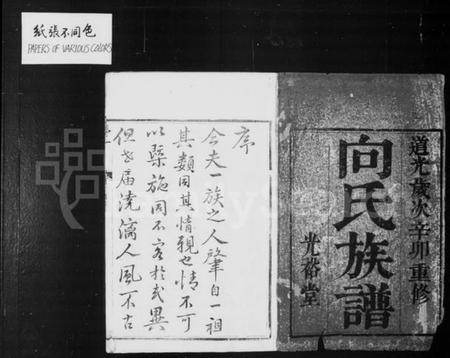 紙張不同色
PAPERS OF VARIOUS COLORS
道光歲次辛卯重修
向氏族譜
光裕堂
序
今夫一族之人肇自一祖
其類同其情親也情不可
以槩施固不容於或異
但世屆澆漓人風不古